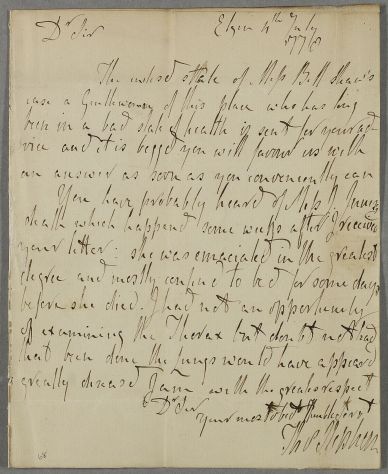 Elgin 4th July
1778
Dr Sir
The inclosed state of Miss Bell Shaw's
case a Gentlewoman of this place who has long
been in a bad state of health is sent for your ad-
vice and it is begged you will favour us with
an answer as soon as you conveniently can
You have probably heard of Miss J. Innes's
death which happened some weeks after I received
your letter: she was emaciated in the greatest
degree and mostly confined to bed for some days
before she died. I had not an opportunity
of examining the Thorax but doubt not had
that been done the lungs would have appeared
greatly diseased I am with the greatest respect
Dr Sir
your most obedt humble servt
Tho Stephen